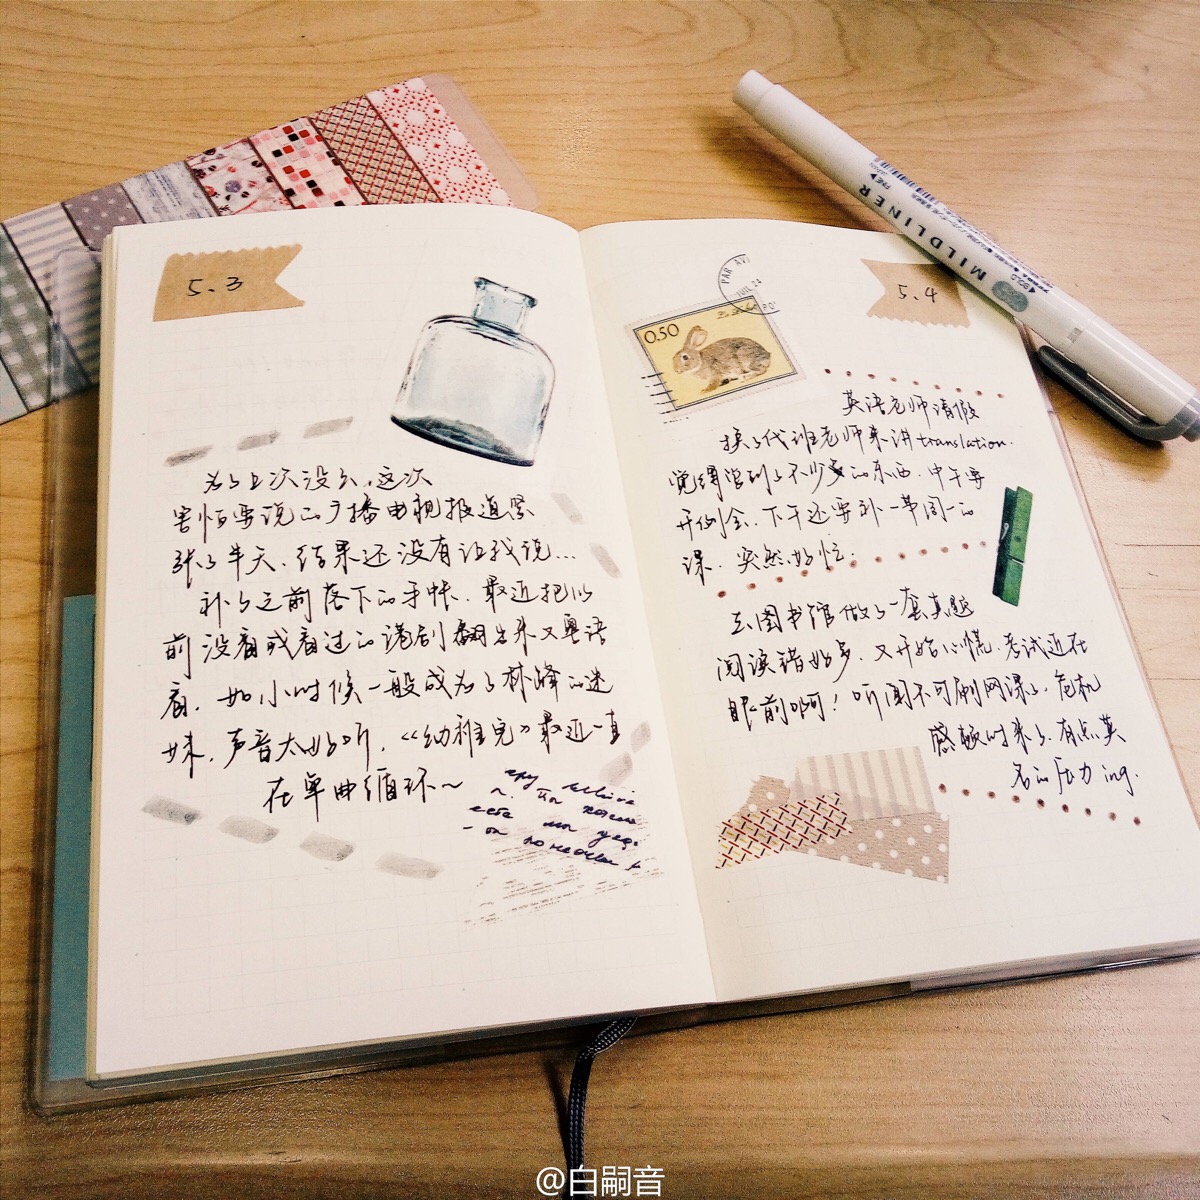 5.3
为了上次没去,这次
害怕要说的广播电视报道紧
张了半天.结果还没有让我说…
补了之前落下的手帐.最近把以
前没看或看过的港剧翻出来又粤语
看.如小时候一般成为了林峰的迷
妹.声音太好听,《幼稚完》最近一直
在单曲循环~
PAR AVI
0.50
5.4
英语老师请假
换了代班老师来讲translation.
觉得学到了不少的东西.中午要
开例会.下午还要补一节周一的
课.突然好忙.
去图书馆做了一套真题
阅读错好多.又开始心慌.考试近在
眼前啊!听闻不可刷网课了.危机
感顿时来了.有点莫
名的压力ing.
MILDLINER
FINE
BOLD
@白嗣音